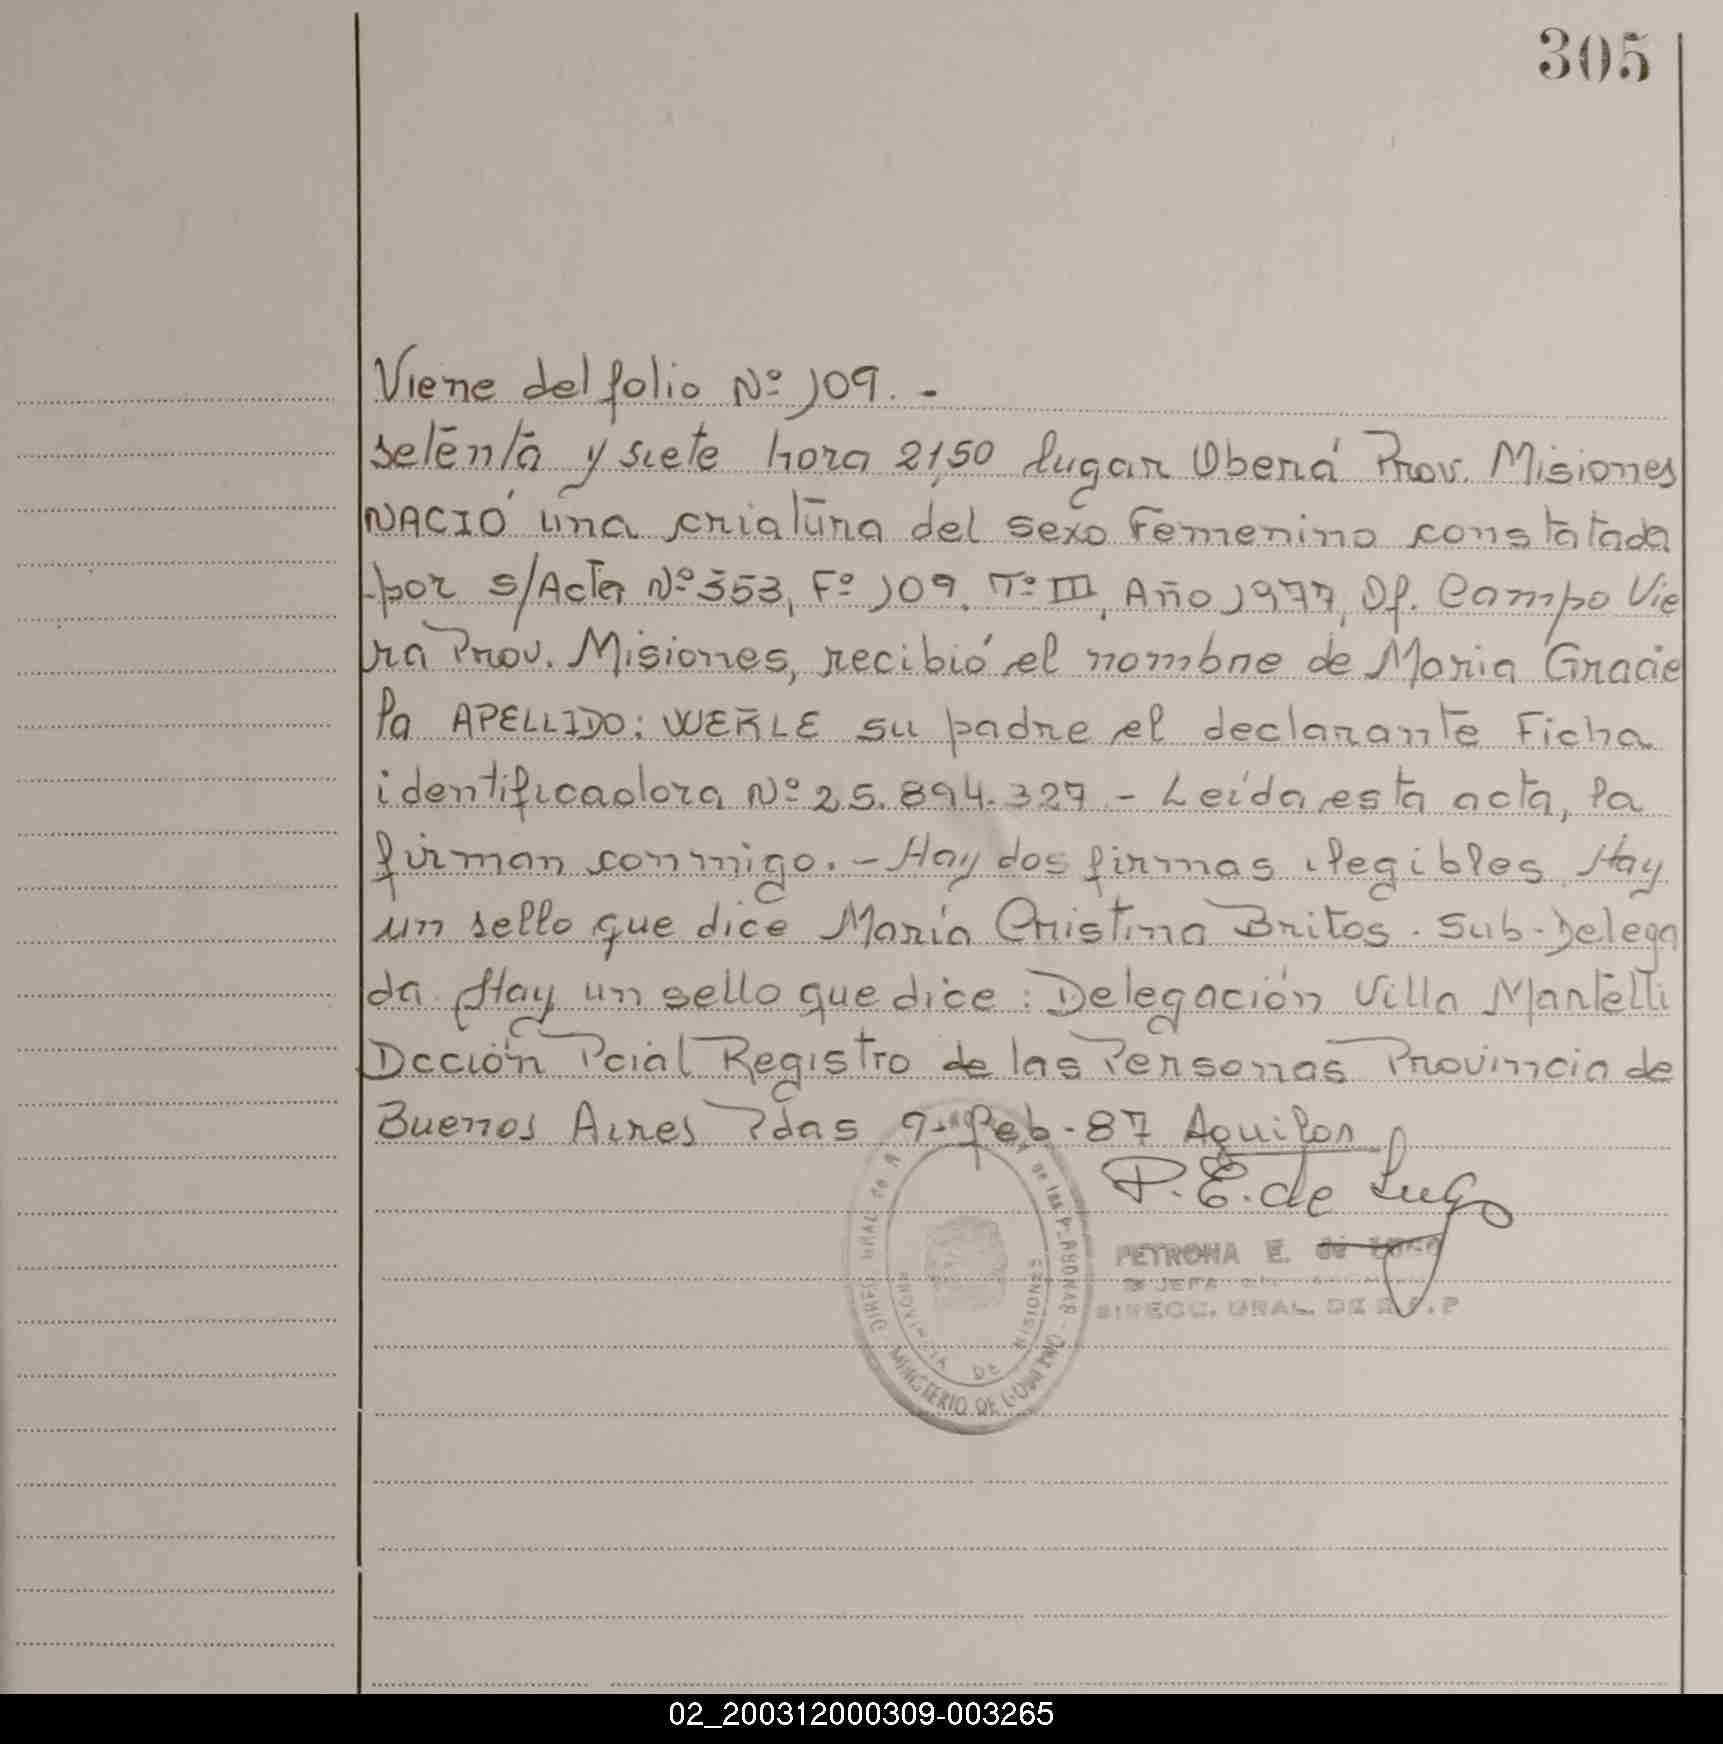 305
Viene del folio Nº 109. -
setenta y siete hora 21,50 lugar Oberá Prov. Misiones
NACIÓ una criatura del sexo Femenino constatada
por s/Acta Nº 353, Fº 109. Tº III, Año 1977, Of. Campo Vie
ra Prov. Misiones, recibió el nombre de Maria Gracie
la APELLIDO: WERLE su padre el declarante Ficha
identificadora Nº 25.894.327 - Leída esta acta, la
firman conmigo. - Hay dos firmas ilegibles Hay
un sello que dice María Cristina Britos. Sub-Delega
da. Hay un sello que dice: Delegación Villa Martelli
Dcción Pcial Registro de las Personas Provincia de
Buenos Aires Pdas 9-Feb-87 Aguilar
P. E. de Lugo
PETRONA E. de
JEFA
DIRECC. GRAL. DE R. P. P
GRAL de
de las P
PROVINCIA DE MISIONES
MINISTERIO DE GOBIERNO
02_200312000309-003265